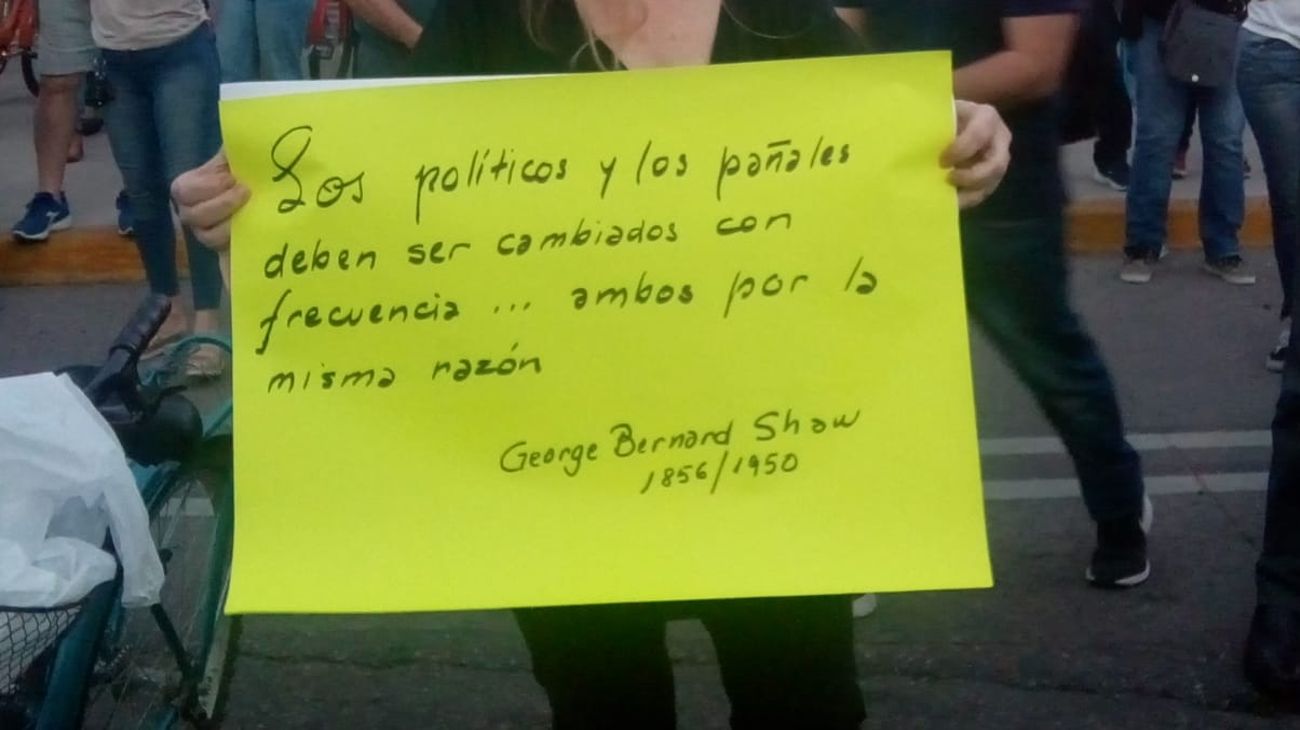 Los políticos y los pañales
deben ser cambiados con
frecuencia ... ambos por la
misma razón
George Bernard Shaw
1856/1950